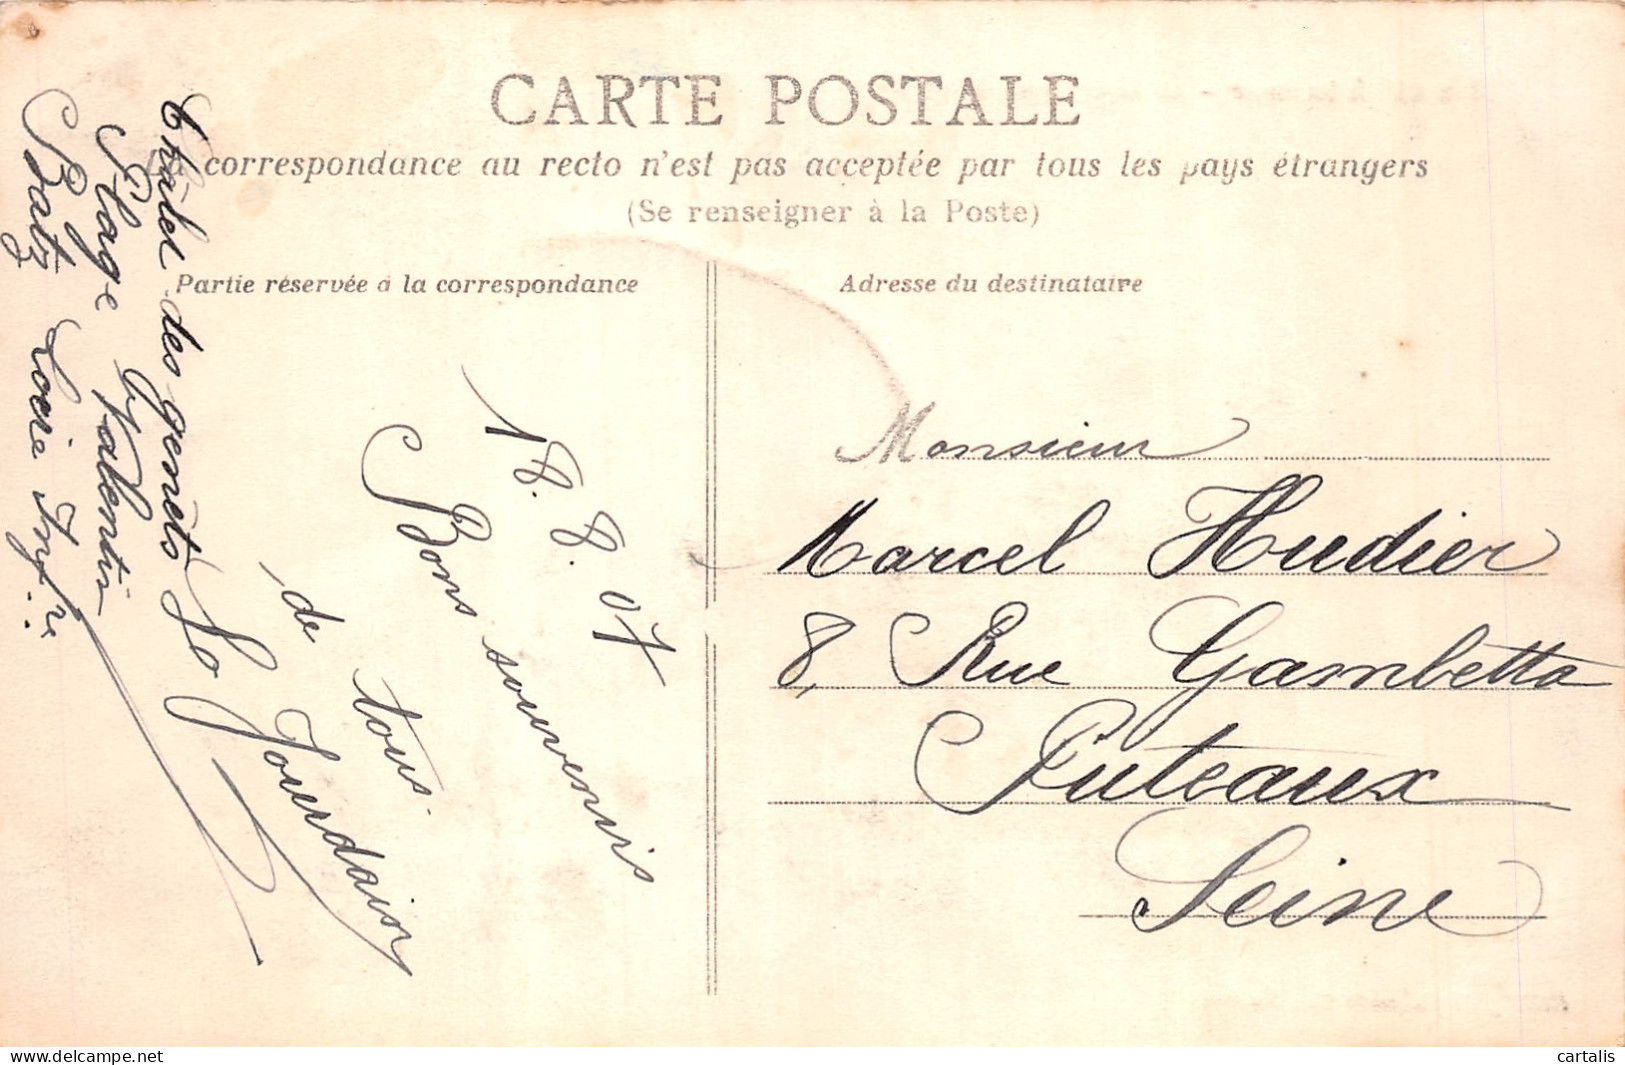 CARTE POSTALE
La correspondance au recto n'est pas acceptée par tous les pays étrangers
(Se renseigner à la Poste)
Partie réservée à la correspondance
Adresse du destinataire
18.8.07
Bons souvenirs
de tous.
Jourdain
Châlet des genêts
Plage Valentin
Batz Loire Infre
Monsieur
Marcel Hudier
8, Rue Gambetta
Puteaux
Seine
www.delcampe.net
cartalis